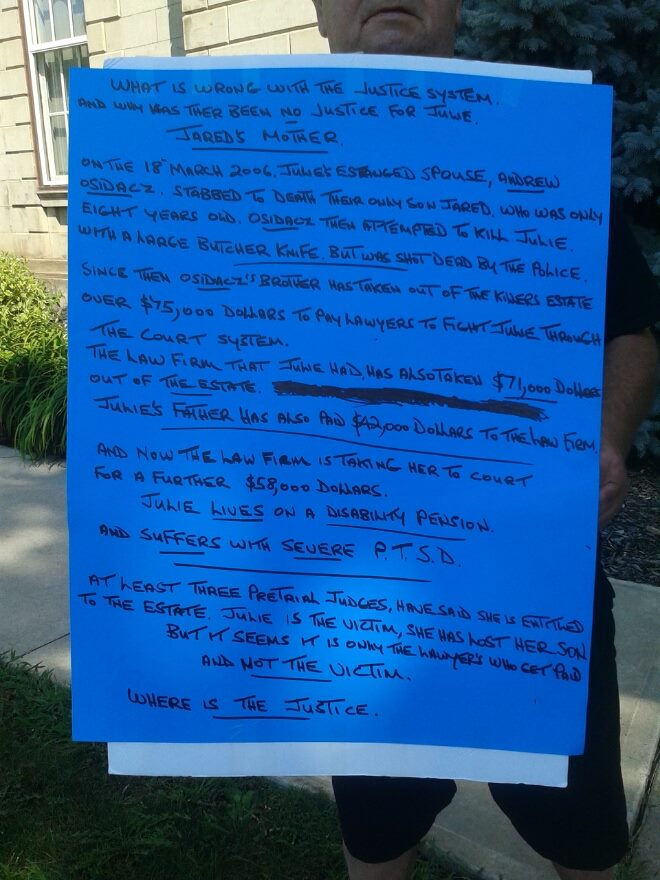 WHAT IS WRONG WITH THE JUSTICE SYSTEM.
AND WHY HAS THER BEEN NO JUSTICE FOR JULIE.
JARED'S MOTHER.
ON THE 18TH MARCH 2006. JULIE'S ESTRANGED SPOUSE, ANDREW
OSIDACZ. STABBED TO DEATH THEIR ONLY SON JARED. WHO WAS ONLY
EIGHT YEARS OLD. OSIDACZ THEN ATTEMPTED TO KILL JULIE.
WITH A LARGE BUTCHER KNIFE. BUT WAS SHOT DEAD BY THE POLICE.
SINCE THEN OSIDACZ'S BROTHER HAS TAKEN OUT OF THE KILLERS ESTATE
OVER $75,000 DOLLARS TO PAY LAWYERS TO FIGHT JULIE THROUGH
THE COURT SYSTEM.
THE LAW FIRM THAT JULIE HAD, HAS ALSO TAKEN $71,000 DOLLARS
OUT OF THE ESTATE.
JULIE'S FATHER HAS ALSO PAID $42,000 DOLLARS TO THE LAW FIRM.
AND NOW THE LAW FIRM IS TAKING HER TO COURT
FOR A FURTHER $58,000 DOLLARS.
JULIE LIVES ON A DISABILITY PENSION.
AND SUFFERS WITH SEVERE P.T.S.D.
AT LEAST THREE PRETRIAL JUDGES, HAVE SAID SHE IS ENTITLED
TO THE ESTATE. JULIE IS THE VICTIM, SHE HAS LOST HER SON
BUT IT SEEMS IT IS ONLY THE LAWYER'S WHO GET PAID
AND NOT THE VICTIM.
WHERE IS THE JUSTICE.